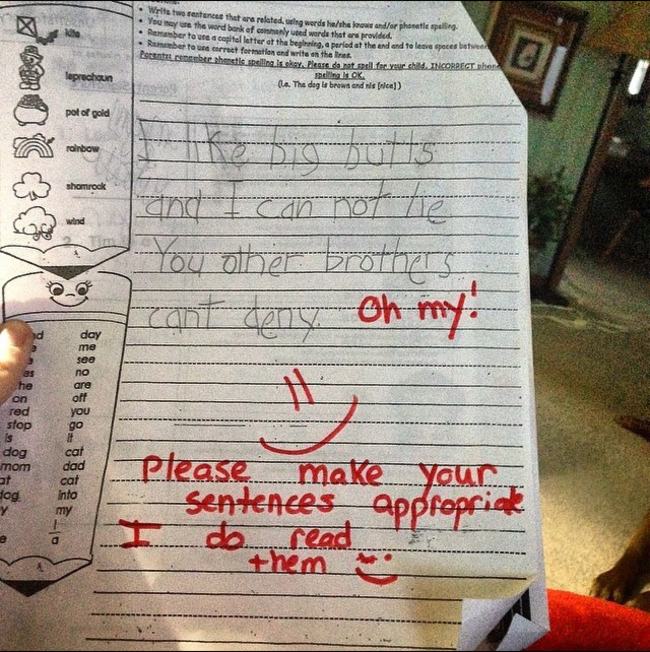 • Write two sentences that are related, using words he/she knows and/or phonetic spelling.
• You may use the word bank of commonly used words that are provided.
• Remember to use a capital letter at the beginning, a period at the end and to leave spaces between
• Remember to use correct formation and write on the lines.
Parents: remember phonetic spelling is okay. Please do not spell for your child. INCORRECT
spelling is OK.
(i.e. The dog is brown and nis [nice] )
kite
leprechaun
pot of gold
rainbow
shamrock
wind
I like big butts
and I can not lie
You other brothers
cant deny. Oh my!
Please make your
sentences appropriate
I do read
them
day
me
see
as no
he are
on off
red you
stop go
is it
dog cat
mom dad
at cat
into
my
I
a